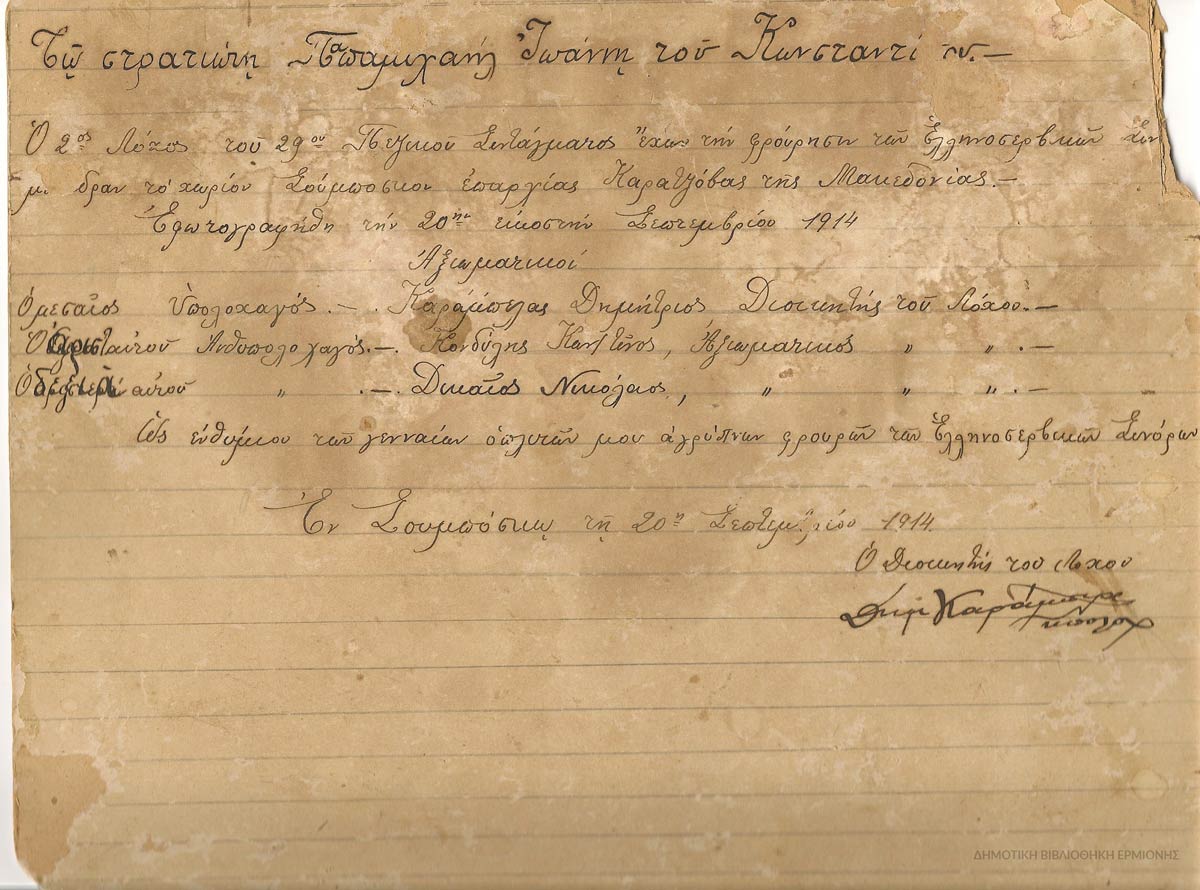 Τῷ στρατιώτῃ Παπαμιχαήλ Ἰωάννῃ τοῦ Κωνσταντί ου.—
Ὁ 2ος Λόχος τοῦ 29ου Πεζικοῦ Συντάγματος ἔχων τὴν φρούρησιν τῶν Ἑλληνοσερβικῶν Συν
δραν τὸ χωρίον Σούμποσκον ἐπαρχίας Καρατζόβας τῆς Μακεδονίας.—
Ἐφωτογραφήθη τὴν 20ην εἰκοστὴν Σεπτεμβρίου 1914
Ἀξιωματικοί
Ὁ μεσαῖος Ὑπολοχαγός .—. Καράμπελας Δημήτριος Διοικητής τοῦ Λόχου.—
Ὁ ἀριστ αὐτοῦ Ἀνθυπολοχαγός.—. Κονδύλης Κων/τῖνος, Ἀξιωματικός " " .—
Ὁ δεξιά αὐτοῦ " .—. Δικαῖος Νικόλαος, " " " .—
Ὡς ἐνθύμιον τῶν γενναίων ὁπλιτῶν μου ἀγρύπνων φρουρῶν τῶν Ἑλληνοσερβικῶν Συνόρων
Ἐν Σουμπόσκῳ τῇ 20ῃ Σεπτεμβρίου 1914
Ὁ Διοικητής τοῦ Λόχου
Δημ Καράμπελας
ΔΗΜΟΤΙΚΗ ΒΙΒΛΙΟΘΗΚΗ ΕΡΜΙΟΝΗΣ